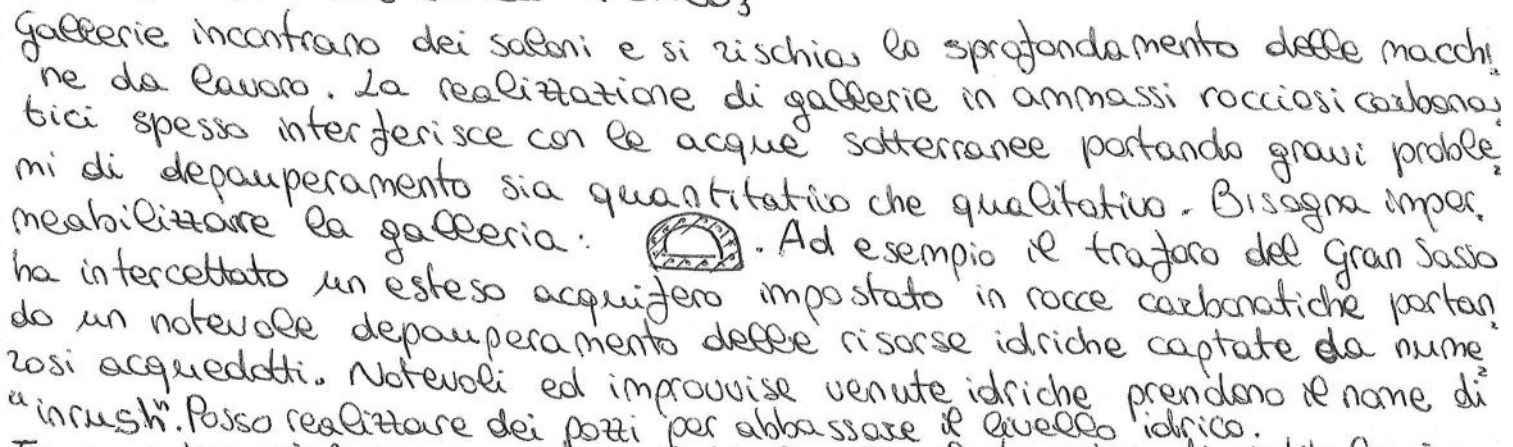 gallerie incontrano dei saloni e si rischia lo sprofondamento delle macchi
ne da lavoro. La realizzazione di gallerie in ammassi rocciosi carbona
tici spesso interferisce con le acque sotterranee portando gravi proble
mi di depauperamento sia quantitativo che qualitativo. Bisogna imper.
meabilizzare la galleria: . Ad esempio il traforo del Gran Sasso
ha intercettato un esteso acquifero impostato in rocce carbonatiche portan
do un notevole depauperamento delle risorse idriche captate da nume
rosi acquedotti. Notevoli ed improvvise venute idriche prendono il nome di
"inrush". Posso realizzare dei pozzi per abbassare il livello idrico.